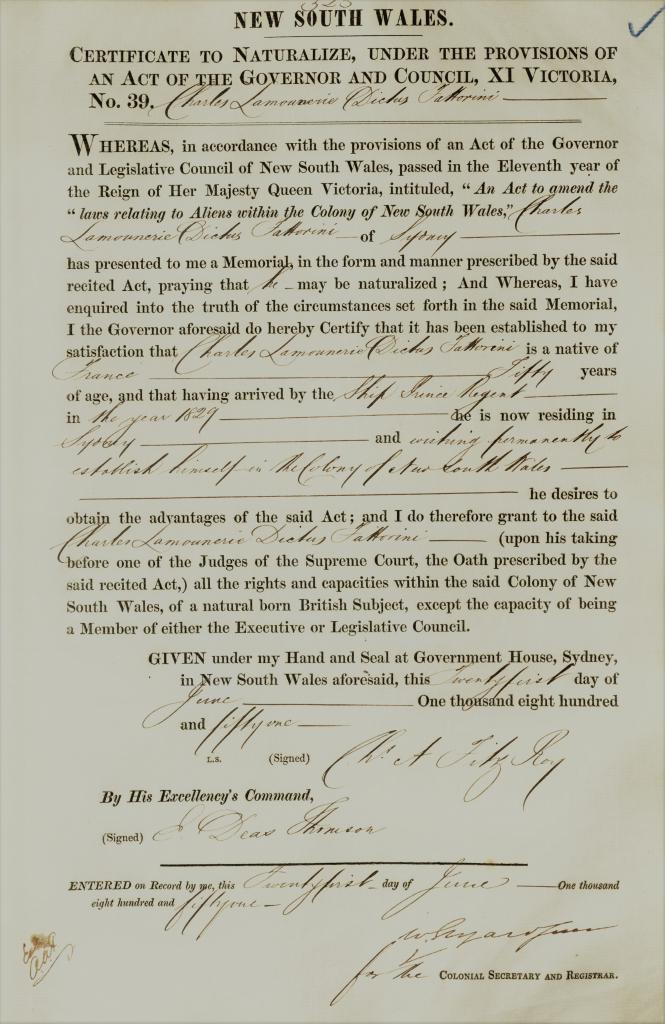 323
NEW SOUTH WALES.
CERTIFICATE TO NATURALIZE, UNDER THE PROVISIONS OF
AN ACT OF THE GOVERNOR AND COUNCIL, XI VICTORIA,
No. 39. Charles Lamounerie Dictus Fattorini
WHEREAS, in accordance with the provisions of an Act of the Governor
and Legislative Council of New South Wales, passed in the Eleventh year of
the Reign of Her Majesty Queen Victoria, intituled, "An Act to amend the
"laws relating to Aliens within the Colony of New South Wales," Charles
Lamounerie Dictus Fattorini of Sydney
has presented to me a Memorial, in the form and manner prescribed by the said
recited Act, praying that he may be naturalized; And Whereas, I have
enquired into the truth of the circumstances set forth in the said Memorial,
I the Governor aforesaid do hereby Certify that it has been established to my
satisfaction that Charles Lamounerie Dictus Fattorini is a native of
France Fifty years
of age, and that having arrived by the Ship Prince Regent
in the year 1829 he is now residing in
Sydney and wishing permanently to
establish himself in the Colony of New South Wales
he desires to
obtain the advantages of the said Act; and I do therefore grant to the said
Charles Lamounerie Dictus Fattorini (upon his taking
before one of the Judges of the Supreme Court, the Oath prescribed by the
said recited Act,) all the rights and capacities within the said Colony of New
South Wales, of a natural born British Subject, except the capacity of being
a Member of either the Executive or Legislative Council.
GIVEN under my Hand and Seal at Government House, Sydney,
in New South Wales aforesaid, this Twenty first day of
June One thousand eight hundred
and fifty one
L.S. (Signed) Chs. A Fitz Roy
By His Excellency's Command,
(Signed) E Deas Thomson
ENTERED on Record by me, this Twenty first day of June One thousand
eight hundred and fifty one
for the COLONIAL SECRETARY AND REGISTRAR.